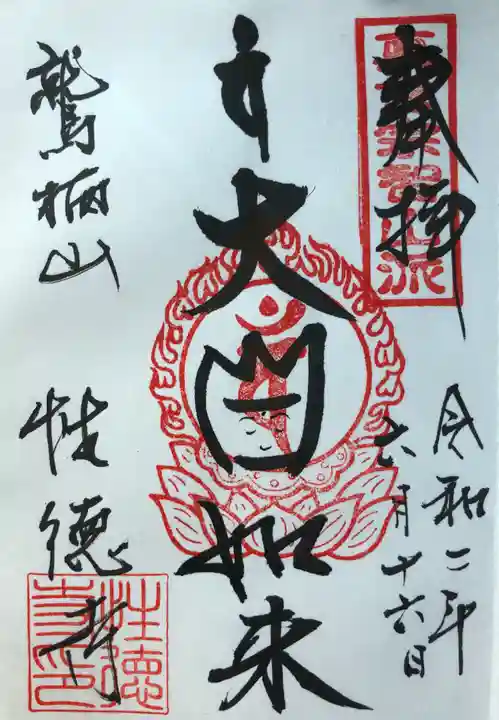 奉拝
真言宗智山派
令和二年
六月十六日
大日如来
鷲柄山
性徳寺
性徳寺印